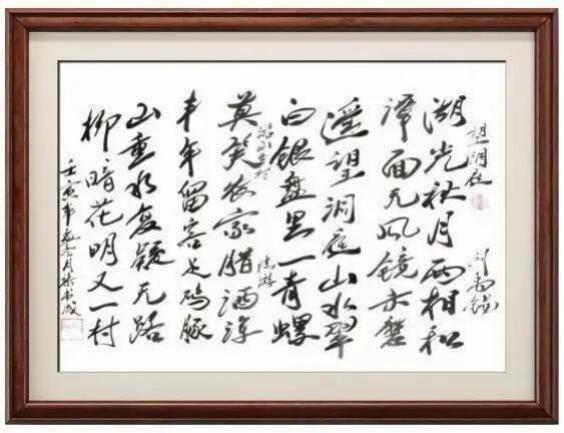 望洞庭 刘禹锡
湖光秋月两相和
潭面无风镜未磨
遥望洞庭山水翠
白银盘里一青螺
陆游
莫笑农家腊酒浑
丰年留客足鸡豚
山重水复疑无路
柳暗花明又一村
壬寅年